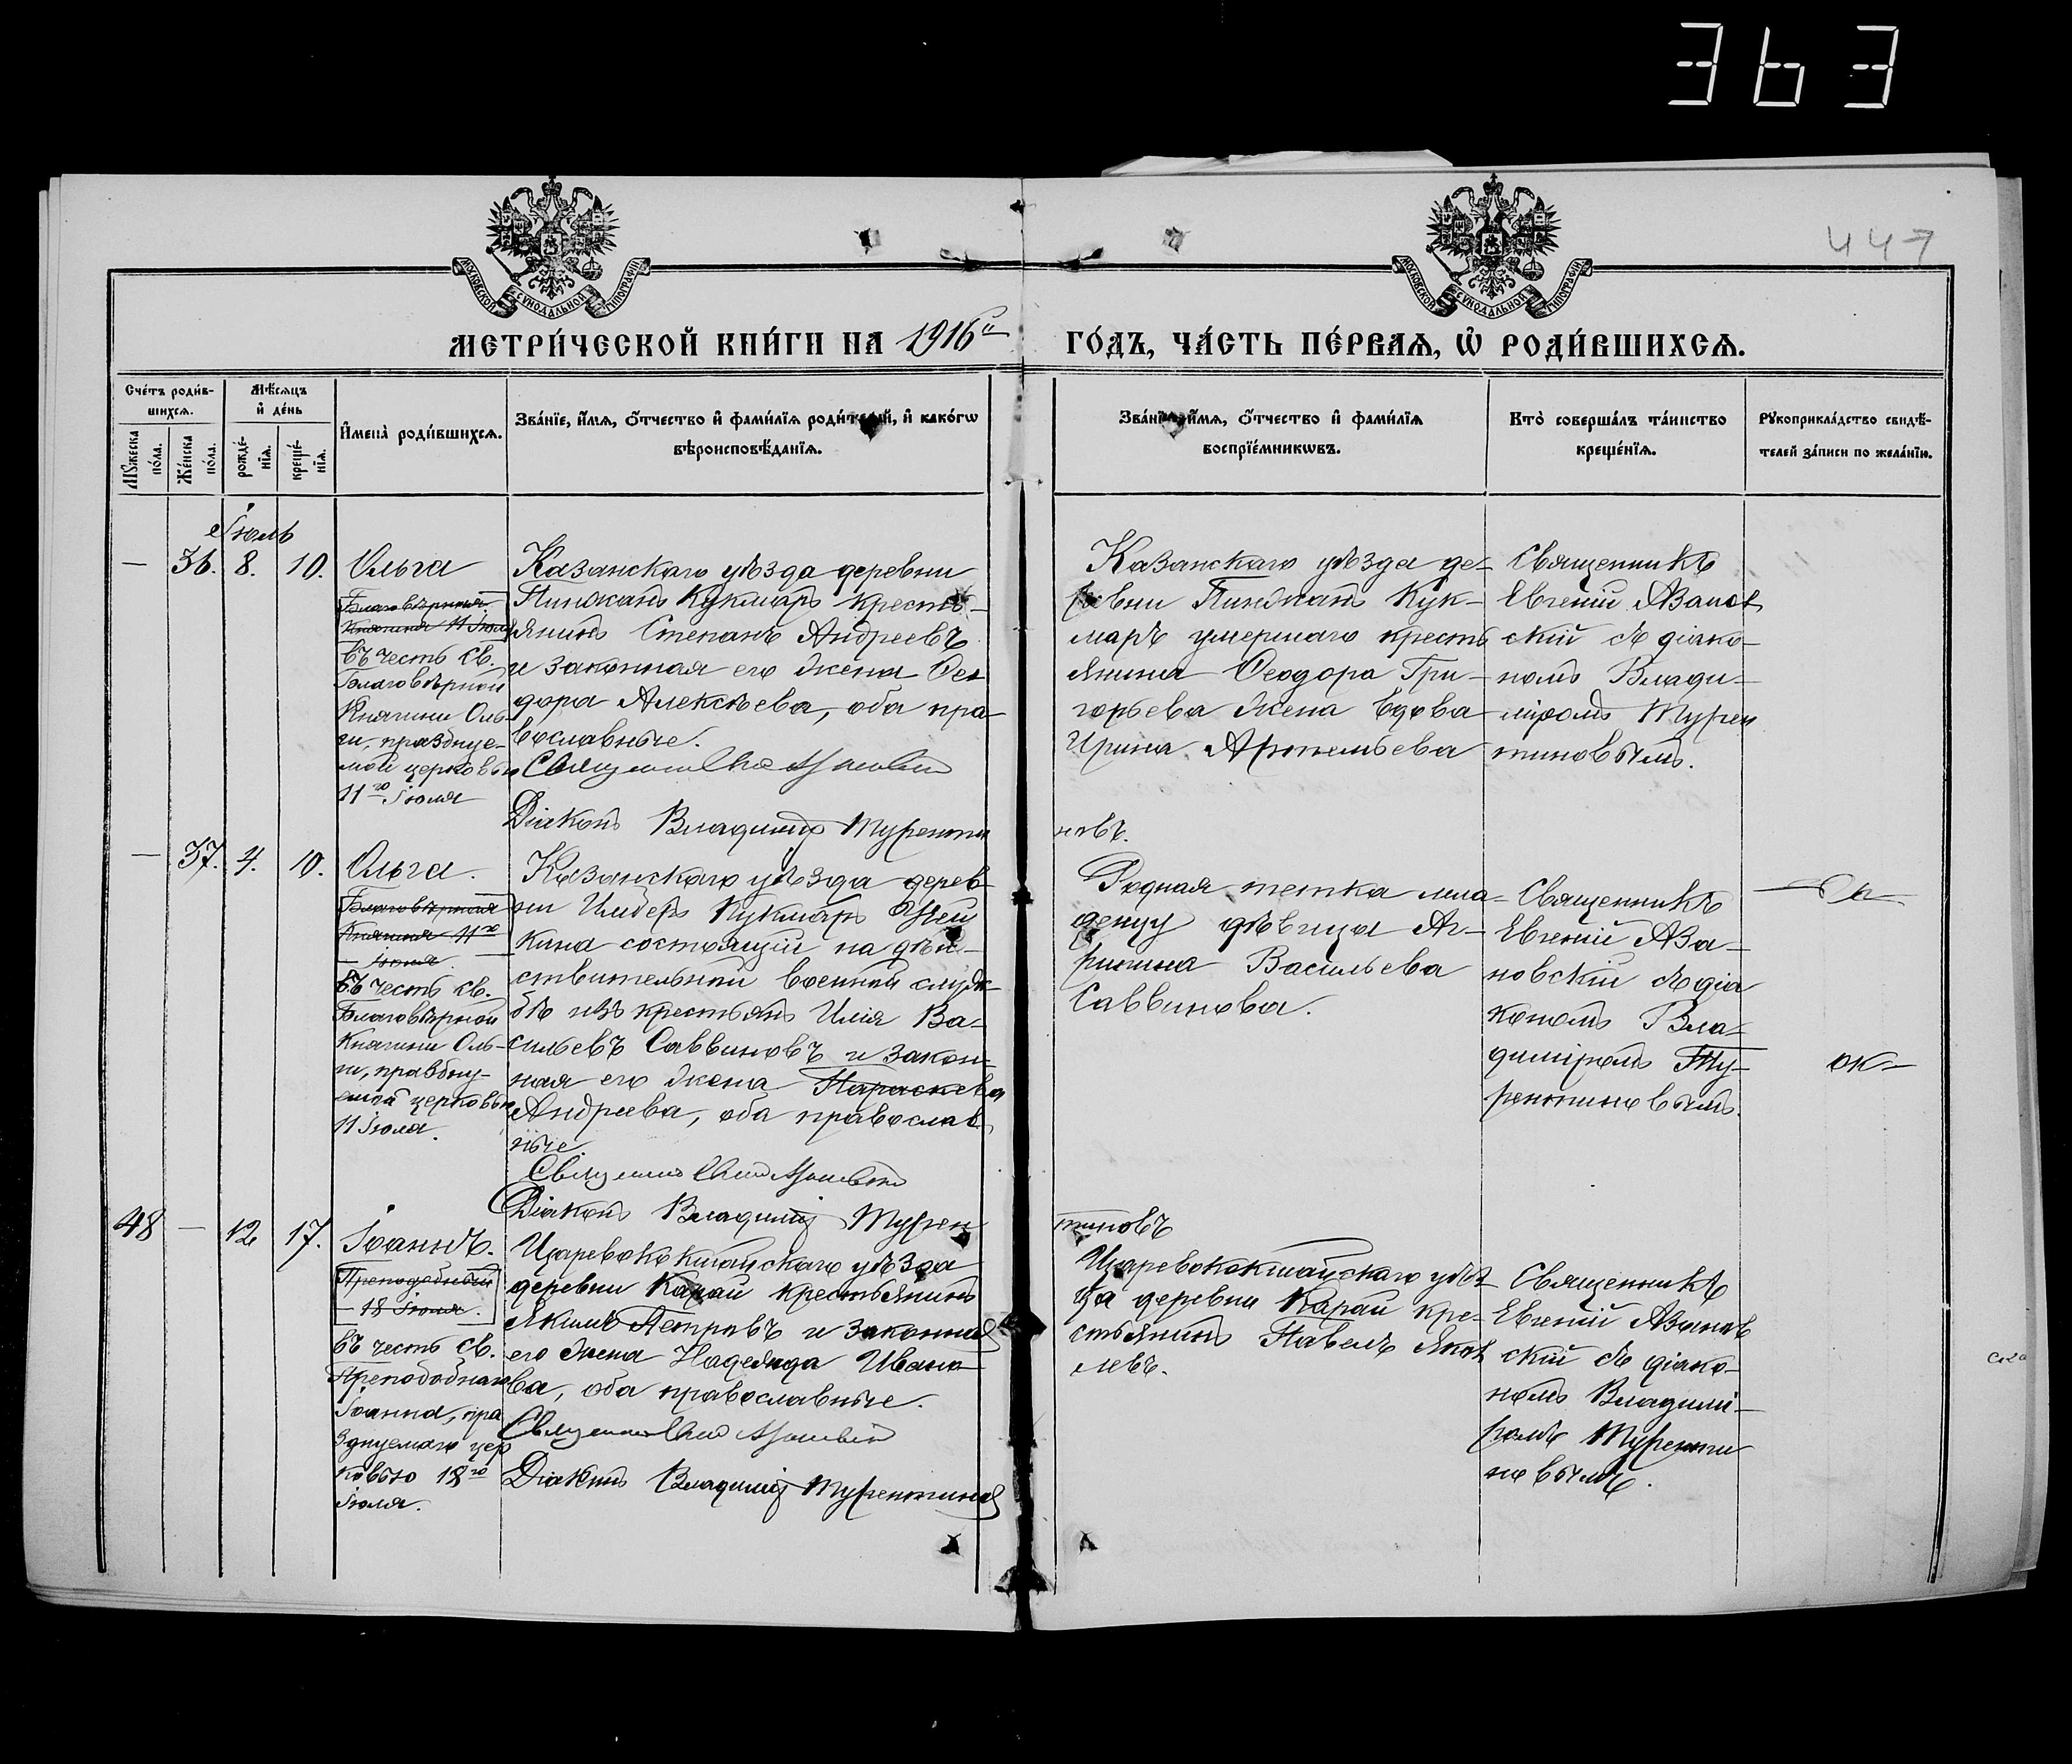 363
447
МОСКОВСКОЙ СѴНОДАЛЬНОЙ ТИПОГРАФІИ
МОСКОВСКОЙ СѴНОДАЛЬНОЙ ТИПОГРАФІИ
МЕТРИ́ЧЕСКОЙ КНИ́ГИ НА 1916й
ГО́ДЪ, ЧА́СТЬ ПЕ́РВАѦ, Ѽ РОДИ́ВШИХСѦ.
Сче́тъ роди́в-
шихсѧ.
Мꙋжеска по́ла.
Же́нска по́ла.
Мѣ́сѧцъ
и҆ де́нь
рожде́-
нїѧ.
креще́-
нїѧ.
И҆мена̀ роди́вшихсѧ.
Зва́нїе, и҆́мѧ, ѻ҆́тчество и҆ фами́лїѧ роди́телей, и҆ како́гѡ
вѣроисповѣ́данїѧ.
Зва́нїе, и҆́мѧ, ѻ҆́тчество и҆ фами́лїѧ
воспрїе́мникѡвъ.
Кто̀ соверша́лъ та́инство
креще́нїѧ.
Рꙋкоприкла́дство свидѣ́-
телей за́писи по жела́нїю.
Іюль
— 36. 8. 10.
Ольга
Благовѣрная
Княгиня 11 Іюля
въ честь св.
Благовѣрной
Княгини Оль-
ги, празднуе-
мой церковью
11го Іюля
Казанскаго уѣзда деревни
Пинжанъ Кукмаръ кресть-
янинъ Степанъ Андреевъ
и законная его жена Ѳео
дора Алексѣева, оба пра-
вославные.
Священникъ
Діаконъ Владиміръ Турентиновъ.
Казанскаго уѣзда де-
ревни Пинжанъ Кук-
маръ умершаго кресть
янина Ѳеодора Гри-
горьева жена вдова
Ирина Артемьева
Священникъ
Евгеній Азанов
скій съ діако-
номъ Влади-
міромъ Турен
тиновымъ.
— 37. 4. 10.
Ольга.
Благовѣрная
Княгиня 11го
Іюля
въ честь св.
Благовѣрной
Княгини Оль-
ги, праздну-
емой церковью
11 Іюля.
Казанскаго уѣзда дерев
ни Кукмаръ
состоящій на дѣй-
ствительной военной служ-
бѣ изъ крестьянъ Илія Ва-
сильевъ Саввиновъ и закон-
ная его жена Параскева
Андреева, оба православ
ные
Священникъ
Діаконъ Владиміръ Турен
тиновъ
Родная тетка мла-
денцу дѣвица Аг-
рипина Васильева
Саввинова.
Священникъ
Евгеній Аза-
новскій съ діа
кономъ Вла-
диміромъ Ту-
рентиновымъ.
48 — 12 17.
Іоаннъ.
Преподобный
18 Іюля.
въ честь св.
Преподобнаго
Іоанна, пра
зднуемаго цер
ковью 18го
Іюля.
Царевококшайскаго уѣзда
деревни Карай крестьянинъ
Якимъ Петровъ и законная
его жена Надежда Ивано-
ва, оба православные.
Священникъ
Діаконъ Владиміръ Турентиновъ
Царевококшайскаго уѣз-
да деревни Карай кре-
стьянинъ Павелъ Яков
левъ.
Священникъ
Евгеній Азанов
скій съ діако-
номъ Владимі-
ромъ Туренти
новымъ.